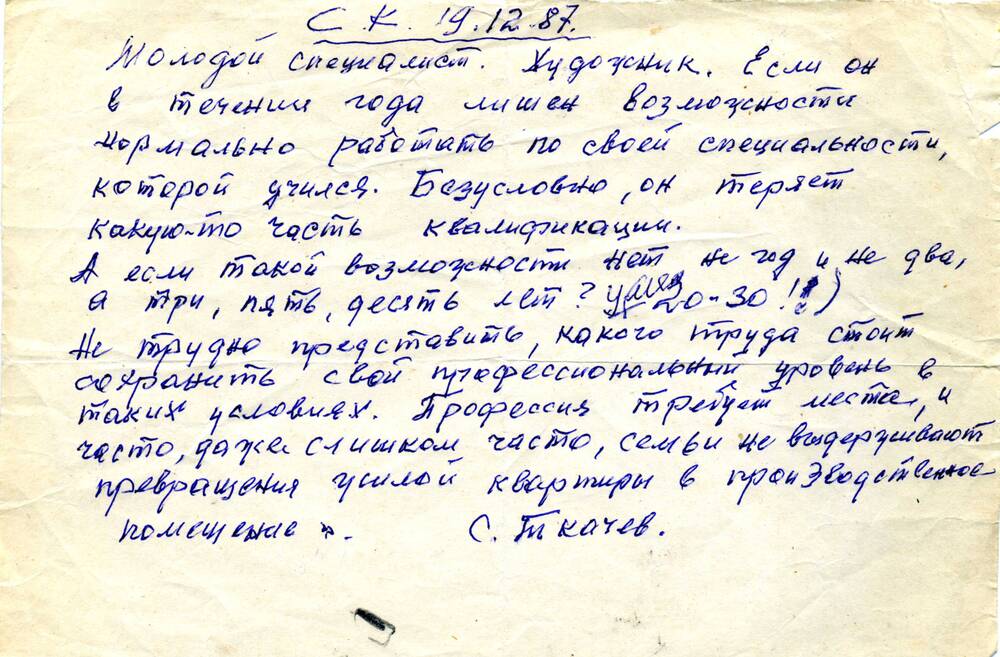 С К. 19.12.87.
Молодой специалист. Художник. Если он
в течении года лишен возможности
нормально работать по своей специальности,
которой учился. Безусловно, он теряет
какую-то часть квалификации.
А если такой возможности нет не год и не два,
а три, пять, десять лет? 20-30!!)
Не трудно представить, какого труда стоит
сохранить свой профессиональный уровень в
таких условиях. Профессия требует места, и
часто, даже слишком часто, семьи не выдерживают
превращения жилой квартиры в производственное
помещение ".
С. Ткачев.